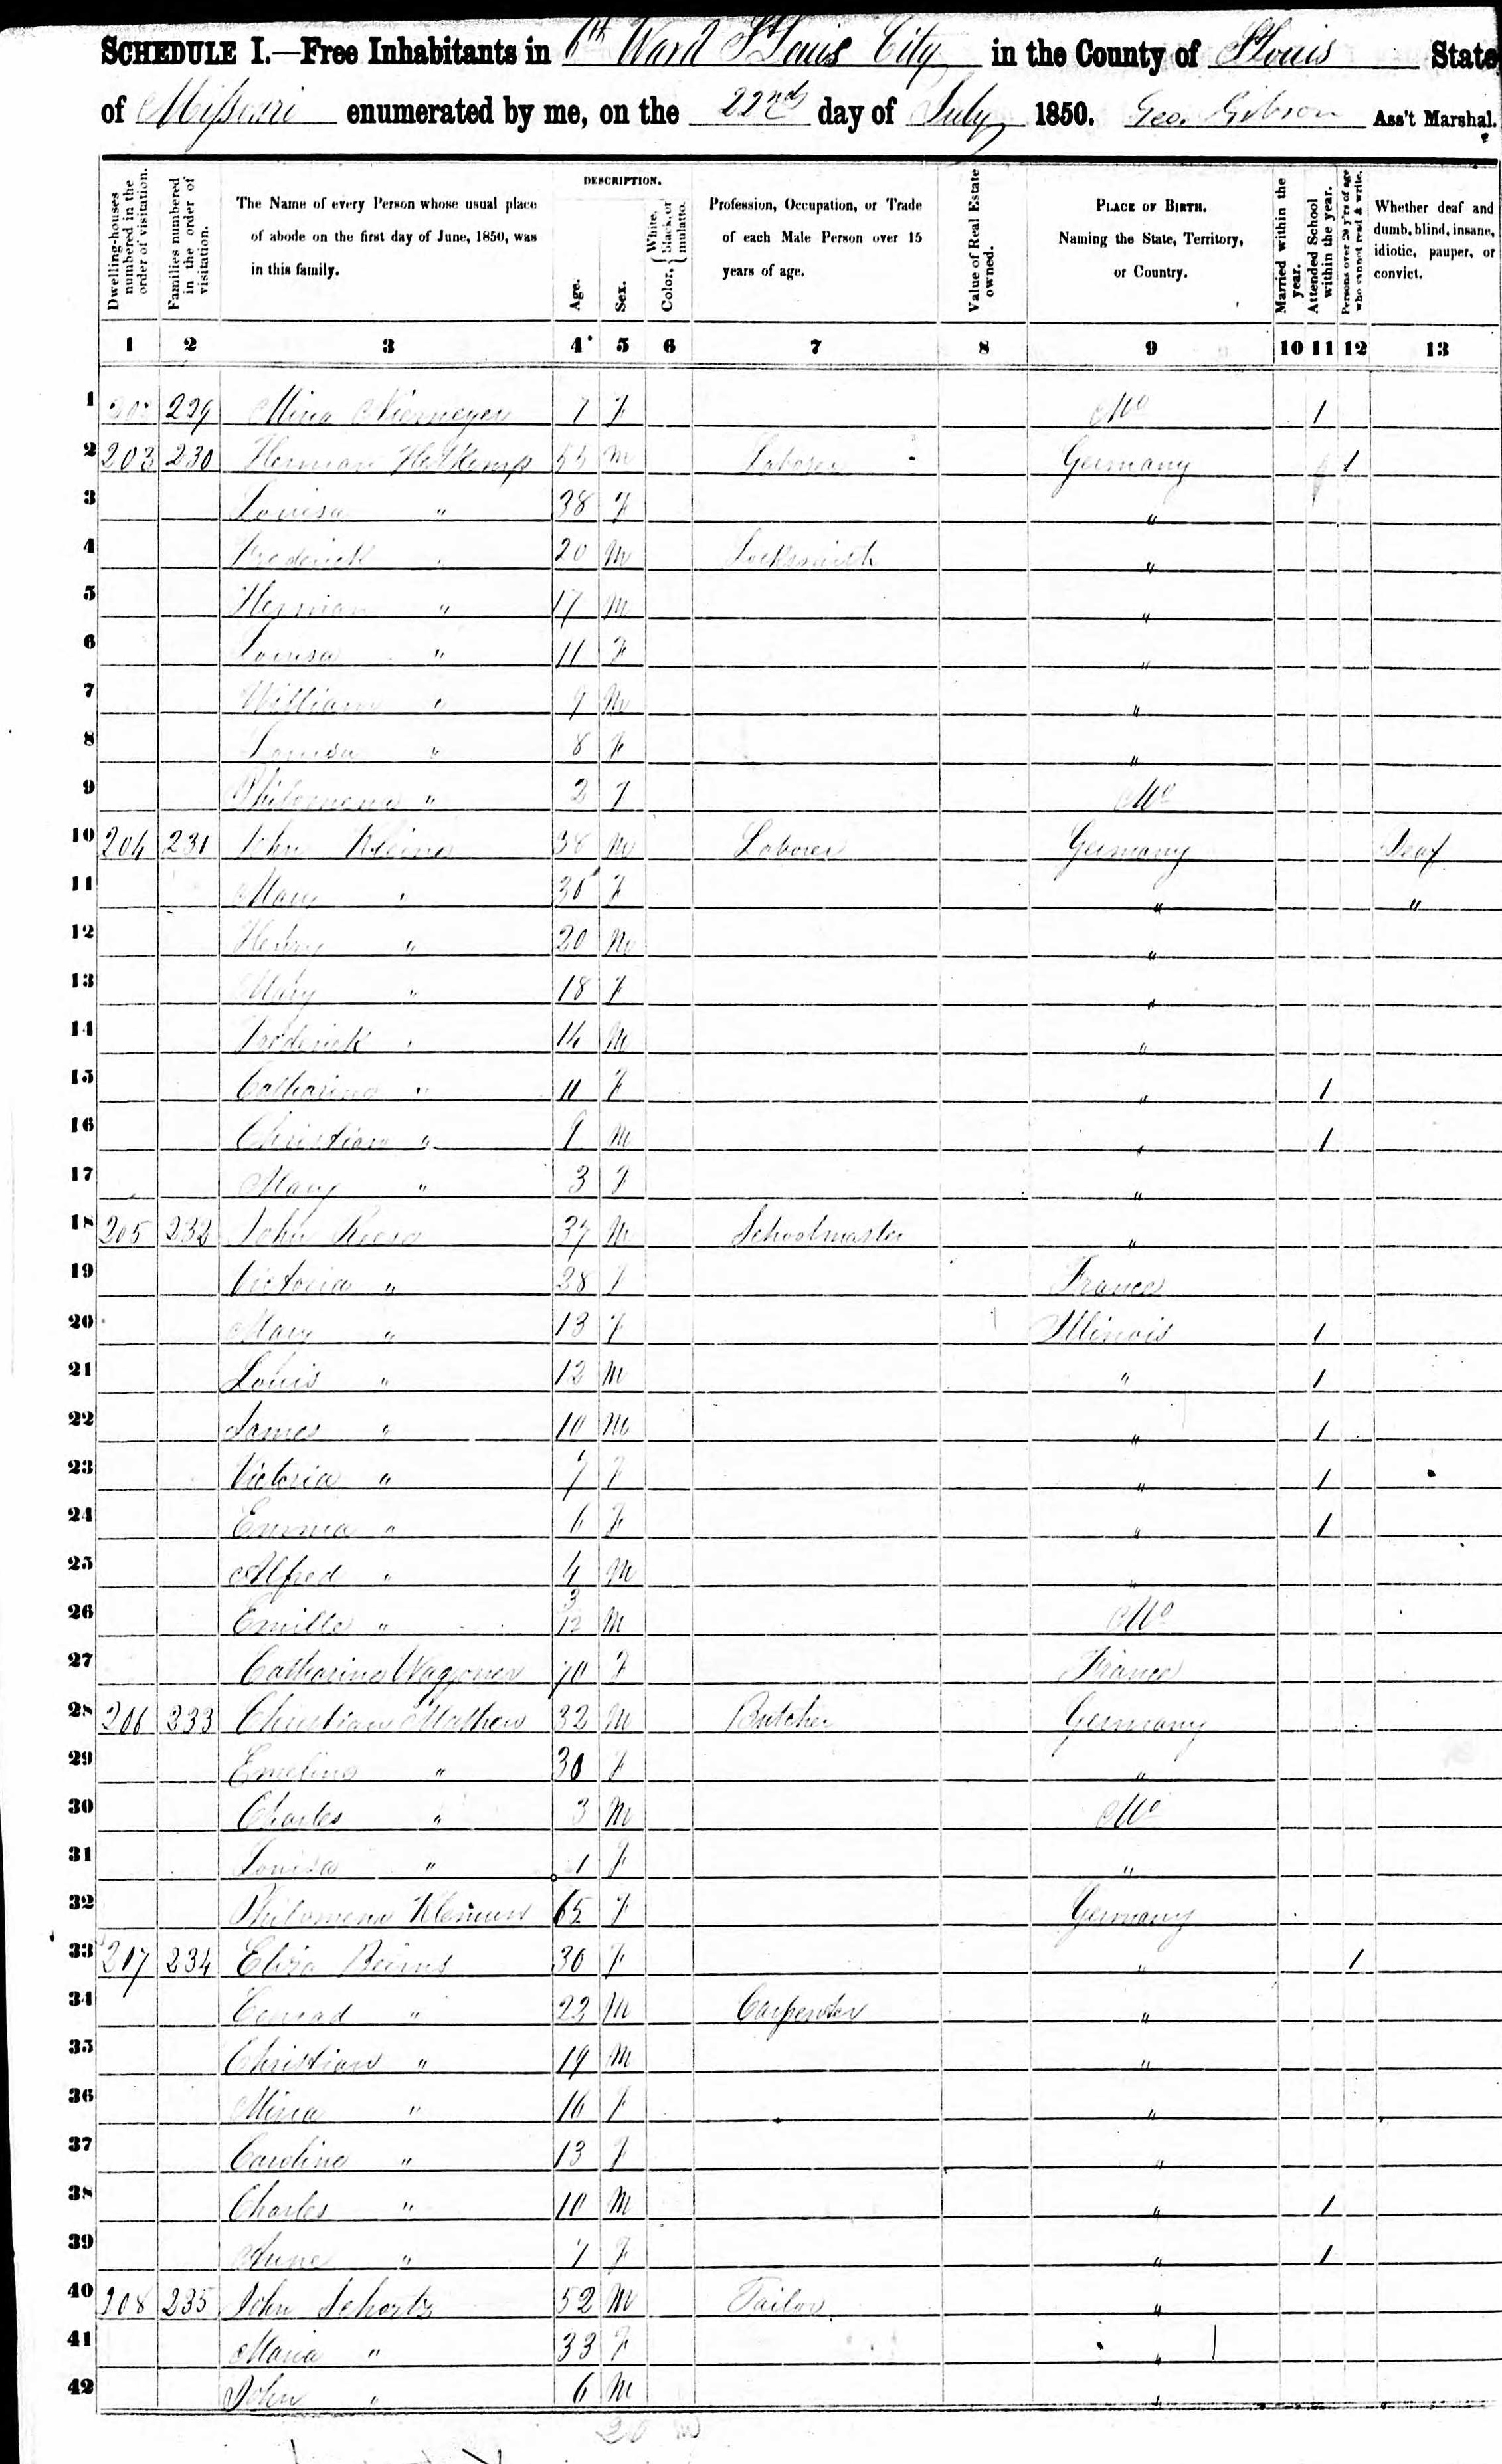 SCHEDULE I.—Free Inhabitants in 6th Ward St Louis City in the County of St Louis State
of Missouri enumerated by me, on the 22nd day of July 1850. Geo. Gibson Ass't Marshal.
Dwelling-houses numbered in the order of visitation.
Families numbered in the order of visitation.
The Name of every Person whose usual place of abode on the first day of June, 1850, was in this family.
DESCRIPTION.
Age.
Sex.
Color, { White, black, or mulatto.
Profession, Occupation, or Trade of each Male Person over 15 years of age.
Value of Real Estate owned.
PLACE OF BIRTH. Naming the State, Territory, or Country.
Married within the year.
Attended School within the year.
Persons over 20 y'rs of age who cannot read & write.
Whether deaf and dumb, blind, insane, idiotic, pauper, or convict.
1 2 3 4 5 6 7 8 9 10 11 12 13
1 202 229 Mina Niemeyer 7 F Mo 1
2 203 230 Herman 55 M Laborer Germany 1
3 Louisa " 38 F "
4 Frederick " 20 M Locksmith "
5 Herman " 17 M "
6 Louisa " 11 F "
7 William " 9 M "
8 Louisa " 8 F "
9 Philomena " 2 F Mo
10 204 231 John Kleina 38 M Laborer Germany Deaf
11 Mary " 30 F " "
12 Henry " 20 M "
13 Mary " 18 F "
14 Frederick " 14 M "
15 Catharina " 11 F " 1
16 Christian " 9 M " 1
17 Mary " 3 F "
18 205 232 John 37 M Schoolmaster "
19 Victoria " 28 F France
20 Mary " 13 F Illinois 1
21 Louis " 12 M " 1
22 James " 10 M " 1
23 Victoria " 7 F " 1
24 Emma " 6 F " 1
25 Alfred " 4 M "
26 Emille " 3/12 M Mo
27 Catharina Waggoner 70 F France
28 206 233 Christian Mathew 32 M Butcher Germany
29 Emelina " 30 F "
30 Charles " 3 M Mo
31 Louisa " 1 F "
32 Philomena 65 F Germany
33 207 234 Eliza Beirns 30 F " 1
34 Conrad " 22 M Carpenter "
35 Christian " 19 M "
36 Mina " 16 F "
37 Carolina " 13 F "
38 Charles " 10 M " 1
39 Anne " 7 F " 1
40 208 235 John Schartz 52 M Tailor "
41 Maria " 33 F "
42 John " 6 M "
20 m